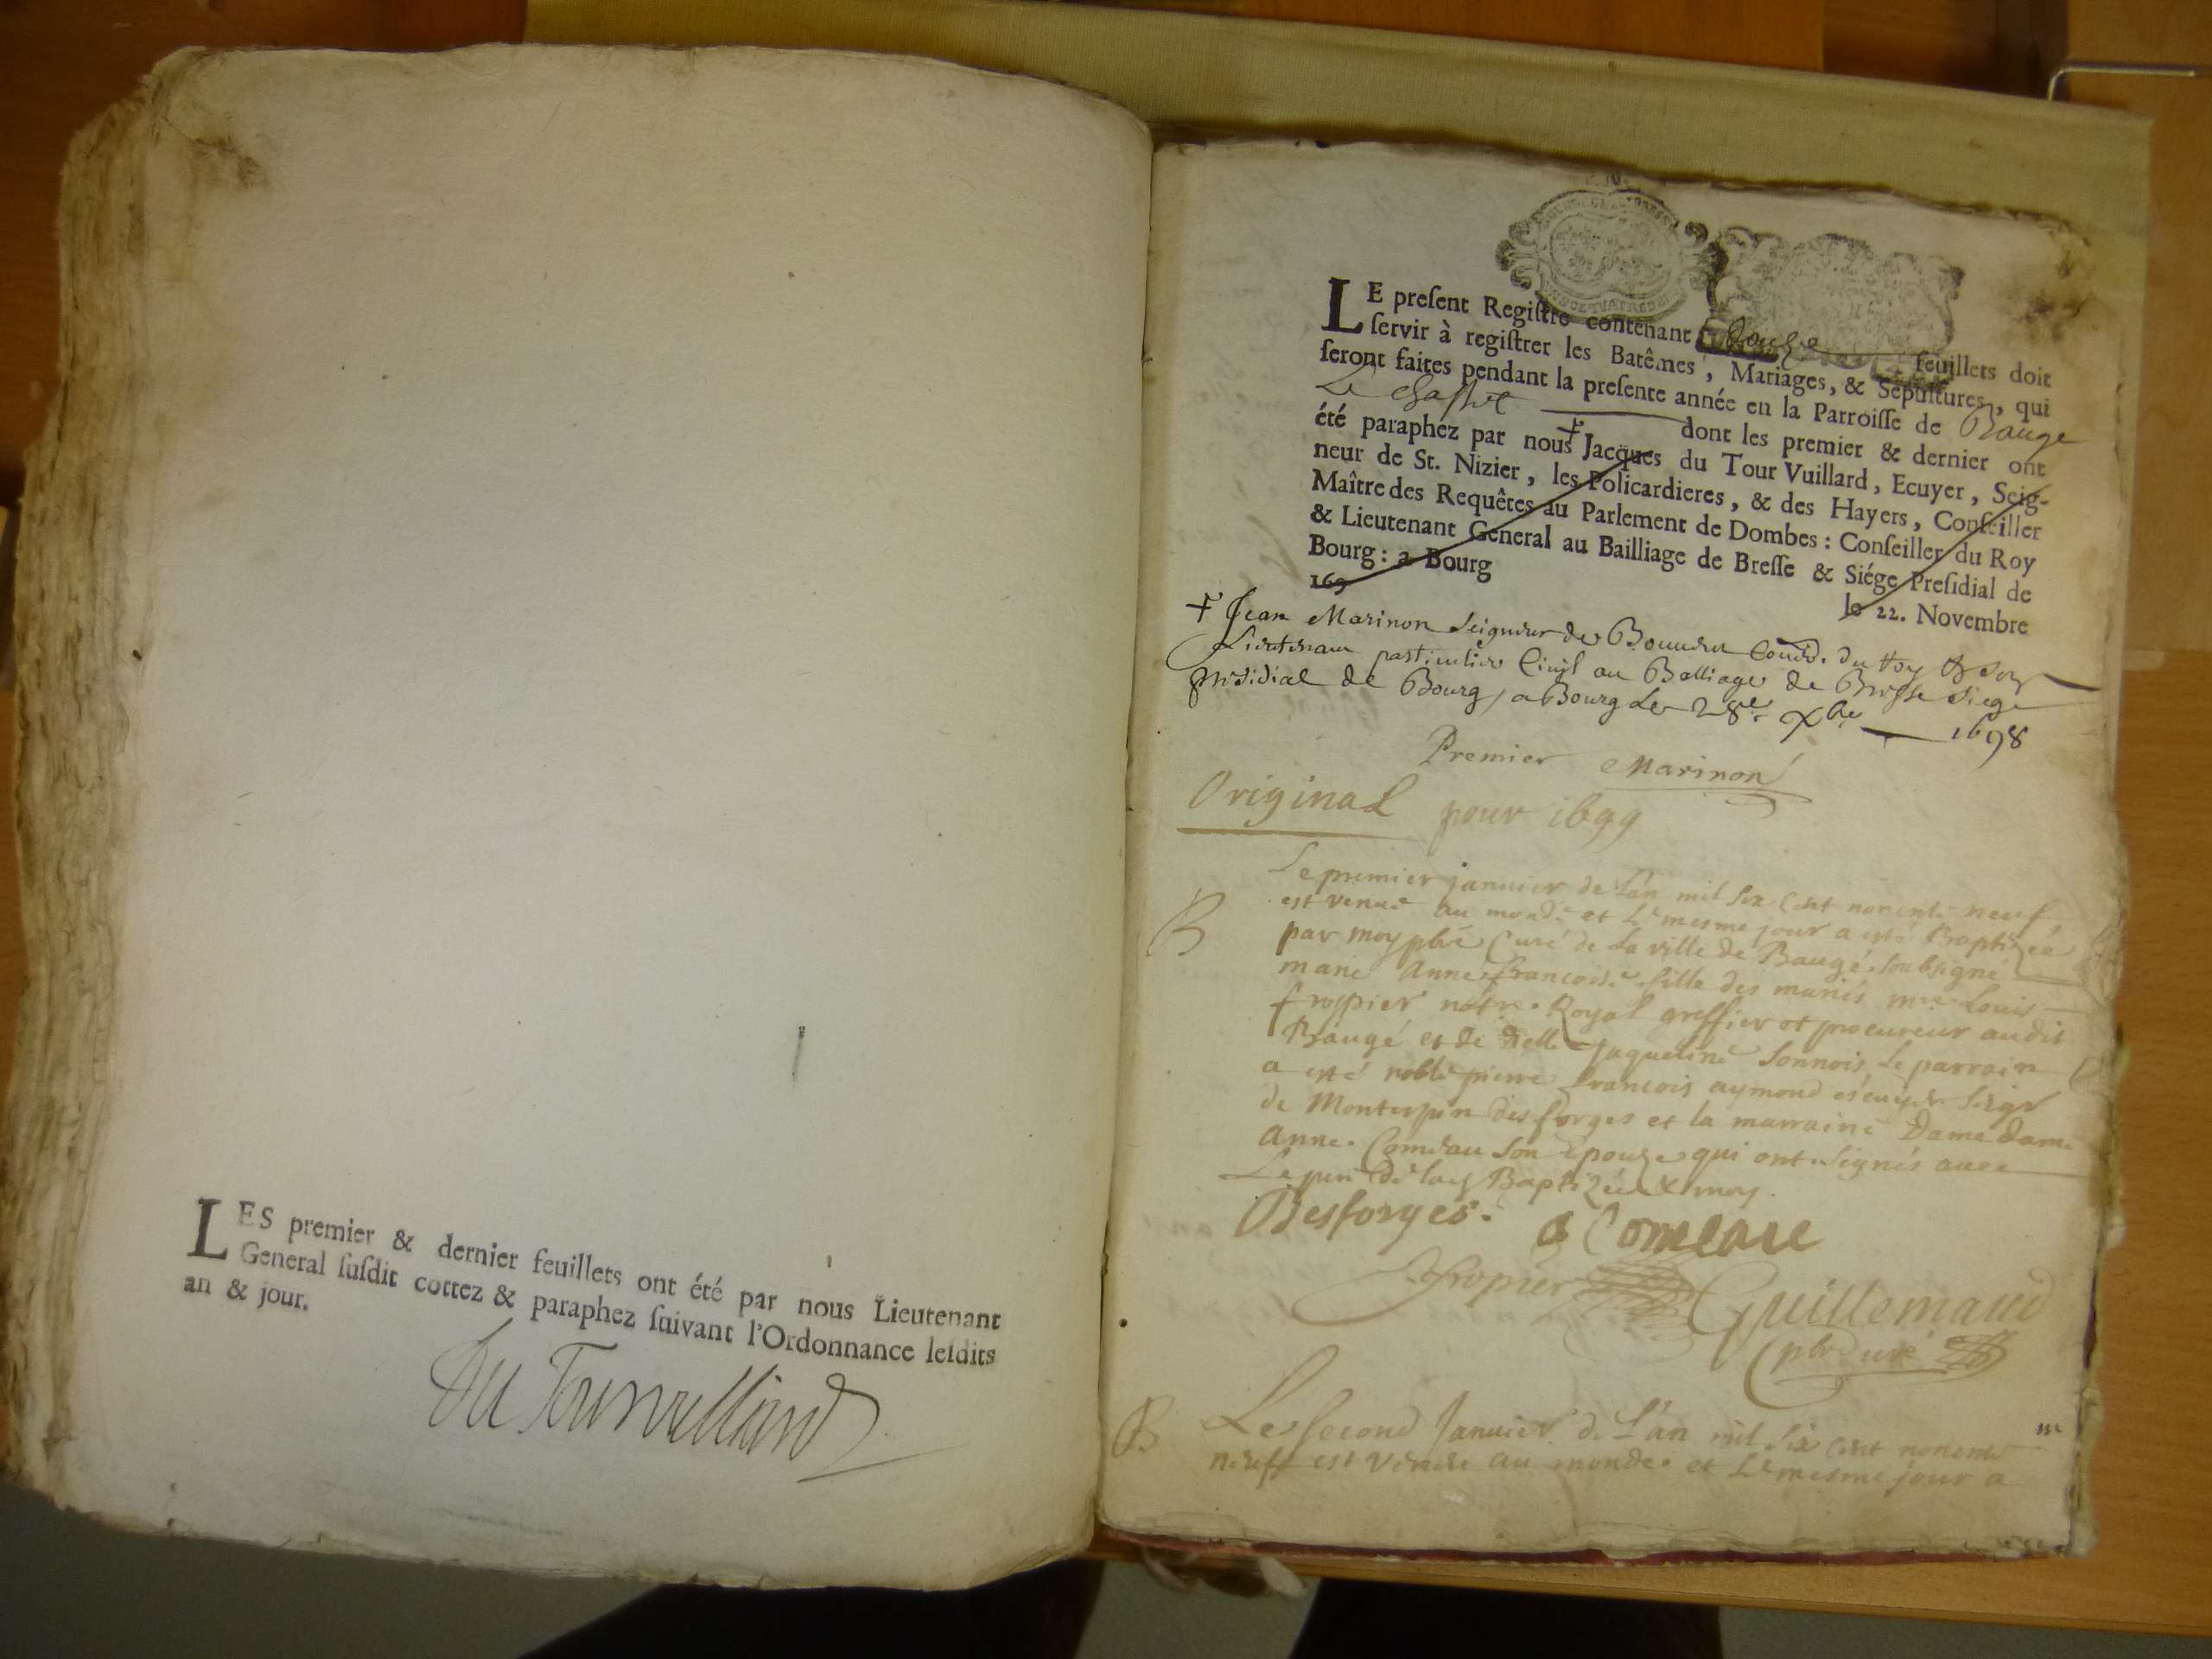 LES premier & dernier feuillets ont été par nous Lieutenant
General susdit cottez & paraphez suivant l'Ordonnance lesdits
an & jour.
Du Tourvuillard
LE present Registre contenant douze feuillets doit
servir à registrer les Batêmes, Mariages, & Sepultures, qui
seront faites pendant la presente année en la Parroisse de Baugé
Le Chastel dont les premier & dernier ont
été paraphez par nous Jacques du Tour Vuillard, Ecuyer, Seig-
neur de St. Nizier, les Policardieres, & des Hayers, Conseiller
Maître des Requêtes au Parlement de Dombes: Conseiller du Roy
& Lieutenant General au Bailliage de Bresse & Siége Presidial de
Bourg: a Bourg le 22. Novembre
169
Jean Marinon Seigneur de du Roy
Lieutenant particulier Civil au Balliage de Bresse Siege
presidial de Bourg, a Bourg Le 28e Xbre 1698
Premier Marinon
Original pour 1699
Le premier janvier de L'an mil six cent nonente neuf
est venue au monde et Le mesme jour a esté Baptizée
B
par moy pbre Curé de La ville de Baugé soubsigné
marie Anne francoise fille des mariés mre Louis
fropier notre Royal greffier et procureur audit
Baugé et de delle Jaqueline Sonnois, Le parrain
a esté noble pierre francois aymond escuyer seigr
de Monterpin des forges et la marraine Dame dame
Anne Comeau son Epouze qui ont signés avec
Le pere de lad Baptizée & moy.
Desforges. a Comeau
fropier Guillemaud
pbr Curé
B
Le second Janvier de L'an mil six cent nonente
neuff est venue au monde et Le mesme jour a